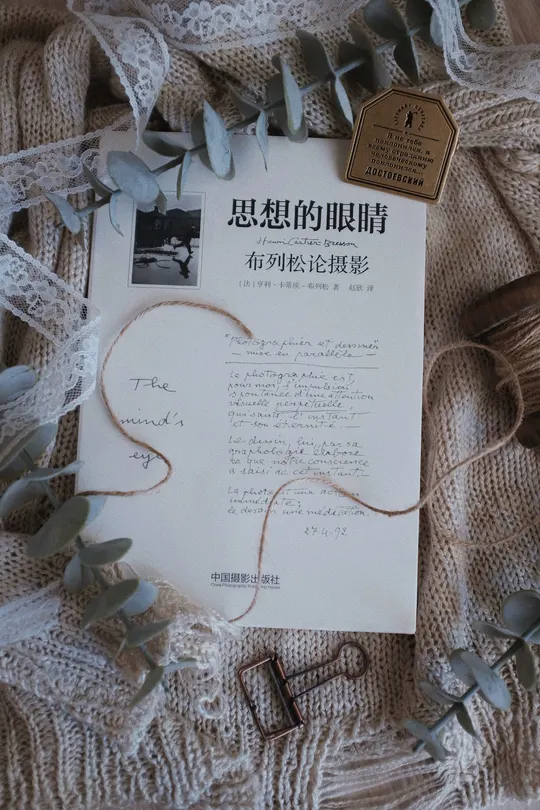 Я не тебе
поклонился, я
всему страданию
человеческому
поклонился...
ДОСТОЕВСКИЙ
思想的眼睛
Henri Cartier-Bresson
布列松论摄影
[法] 亨利·卡蒂埃-布列松 著 赵欣 译
"Photographier et dessiner"
— mise en parallèle —
La photographie est,
pour moi, l'impulsion
spontanée d'une attention
visuelle perpétuelle,
qui saisit l'instant
et son éternité.
Le dessin, lui, par sa
graphologie élabore
ce que notre conscience
a saisi de cet instant.
La photo est une action
immédiate;
le dessin une méditation.
27.4.92
The
mind's
eye
中国摄影出版社
China Photographic Publishing House